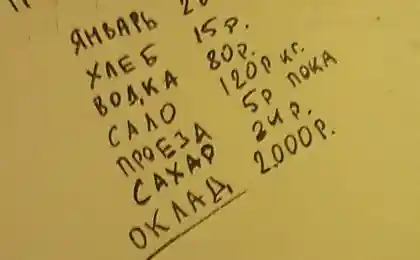 ЯНВАРЬ
ХЛЕБ 15 Р.
ВОДКА 80 Р.
САЛО 120 Р КГ.
ПРОЕЗД 5 Р ПОКА
САХАР 24 Р.
ОКЛАД 2.000 Р.